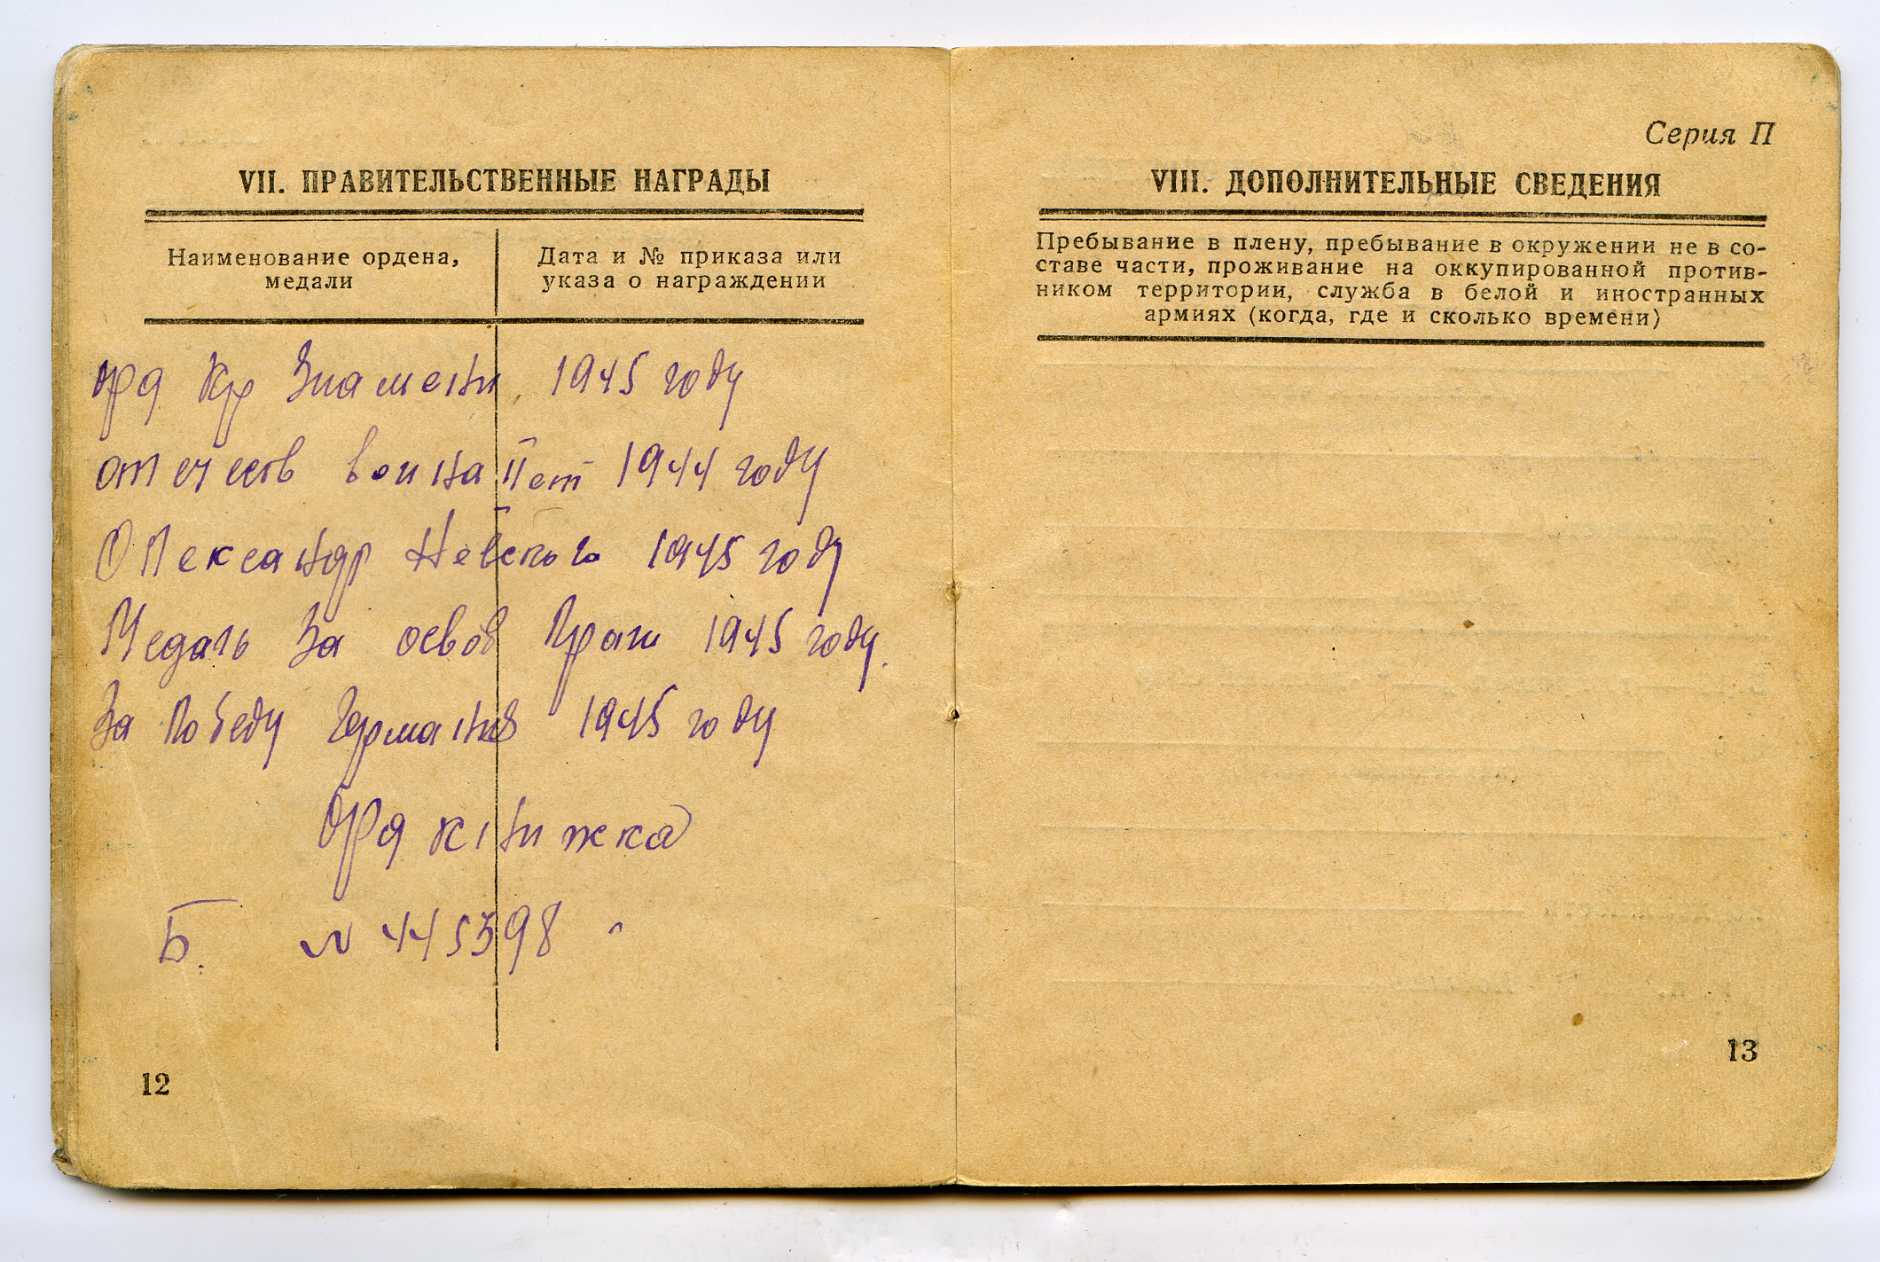 VII. ПРАВИТЕЛЬСТВЕННЫЕ НАГРАДЫ
Наименование ордена,
медали
Дата и № приказа или
указа о награждении
орд Кр Знамени 1945 году
отечеств война II ст 1944 году
Олександр Невского 1945 году
Медаль За освоб Праги 1945 году.
За Победу Германия 1945 году
Орд книжка
Б. N 445398
12
Серия П
VIII. ДОПОЛНИТЕЛЬНЫЕ СВЕДЕНИЯ
Пребывание в плену, пребывание в окружении не в со-
ставе части, проживание на оккупированной против-
ником территории, служба в белой и иностранных
армиях (когда, где и сколько времени)
13